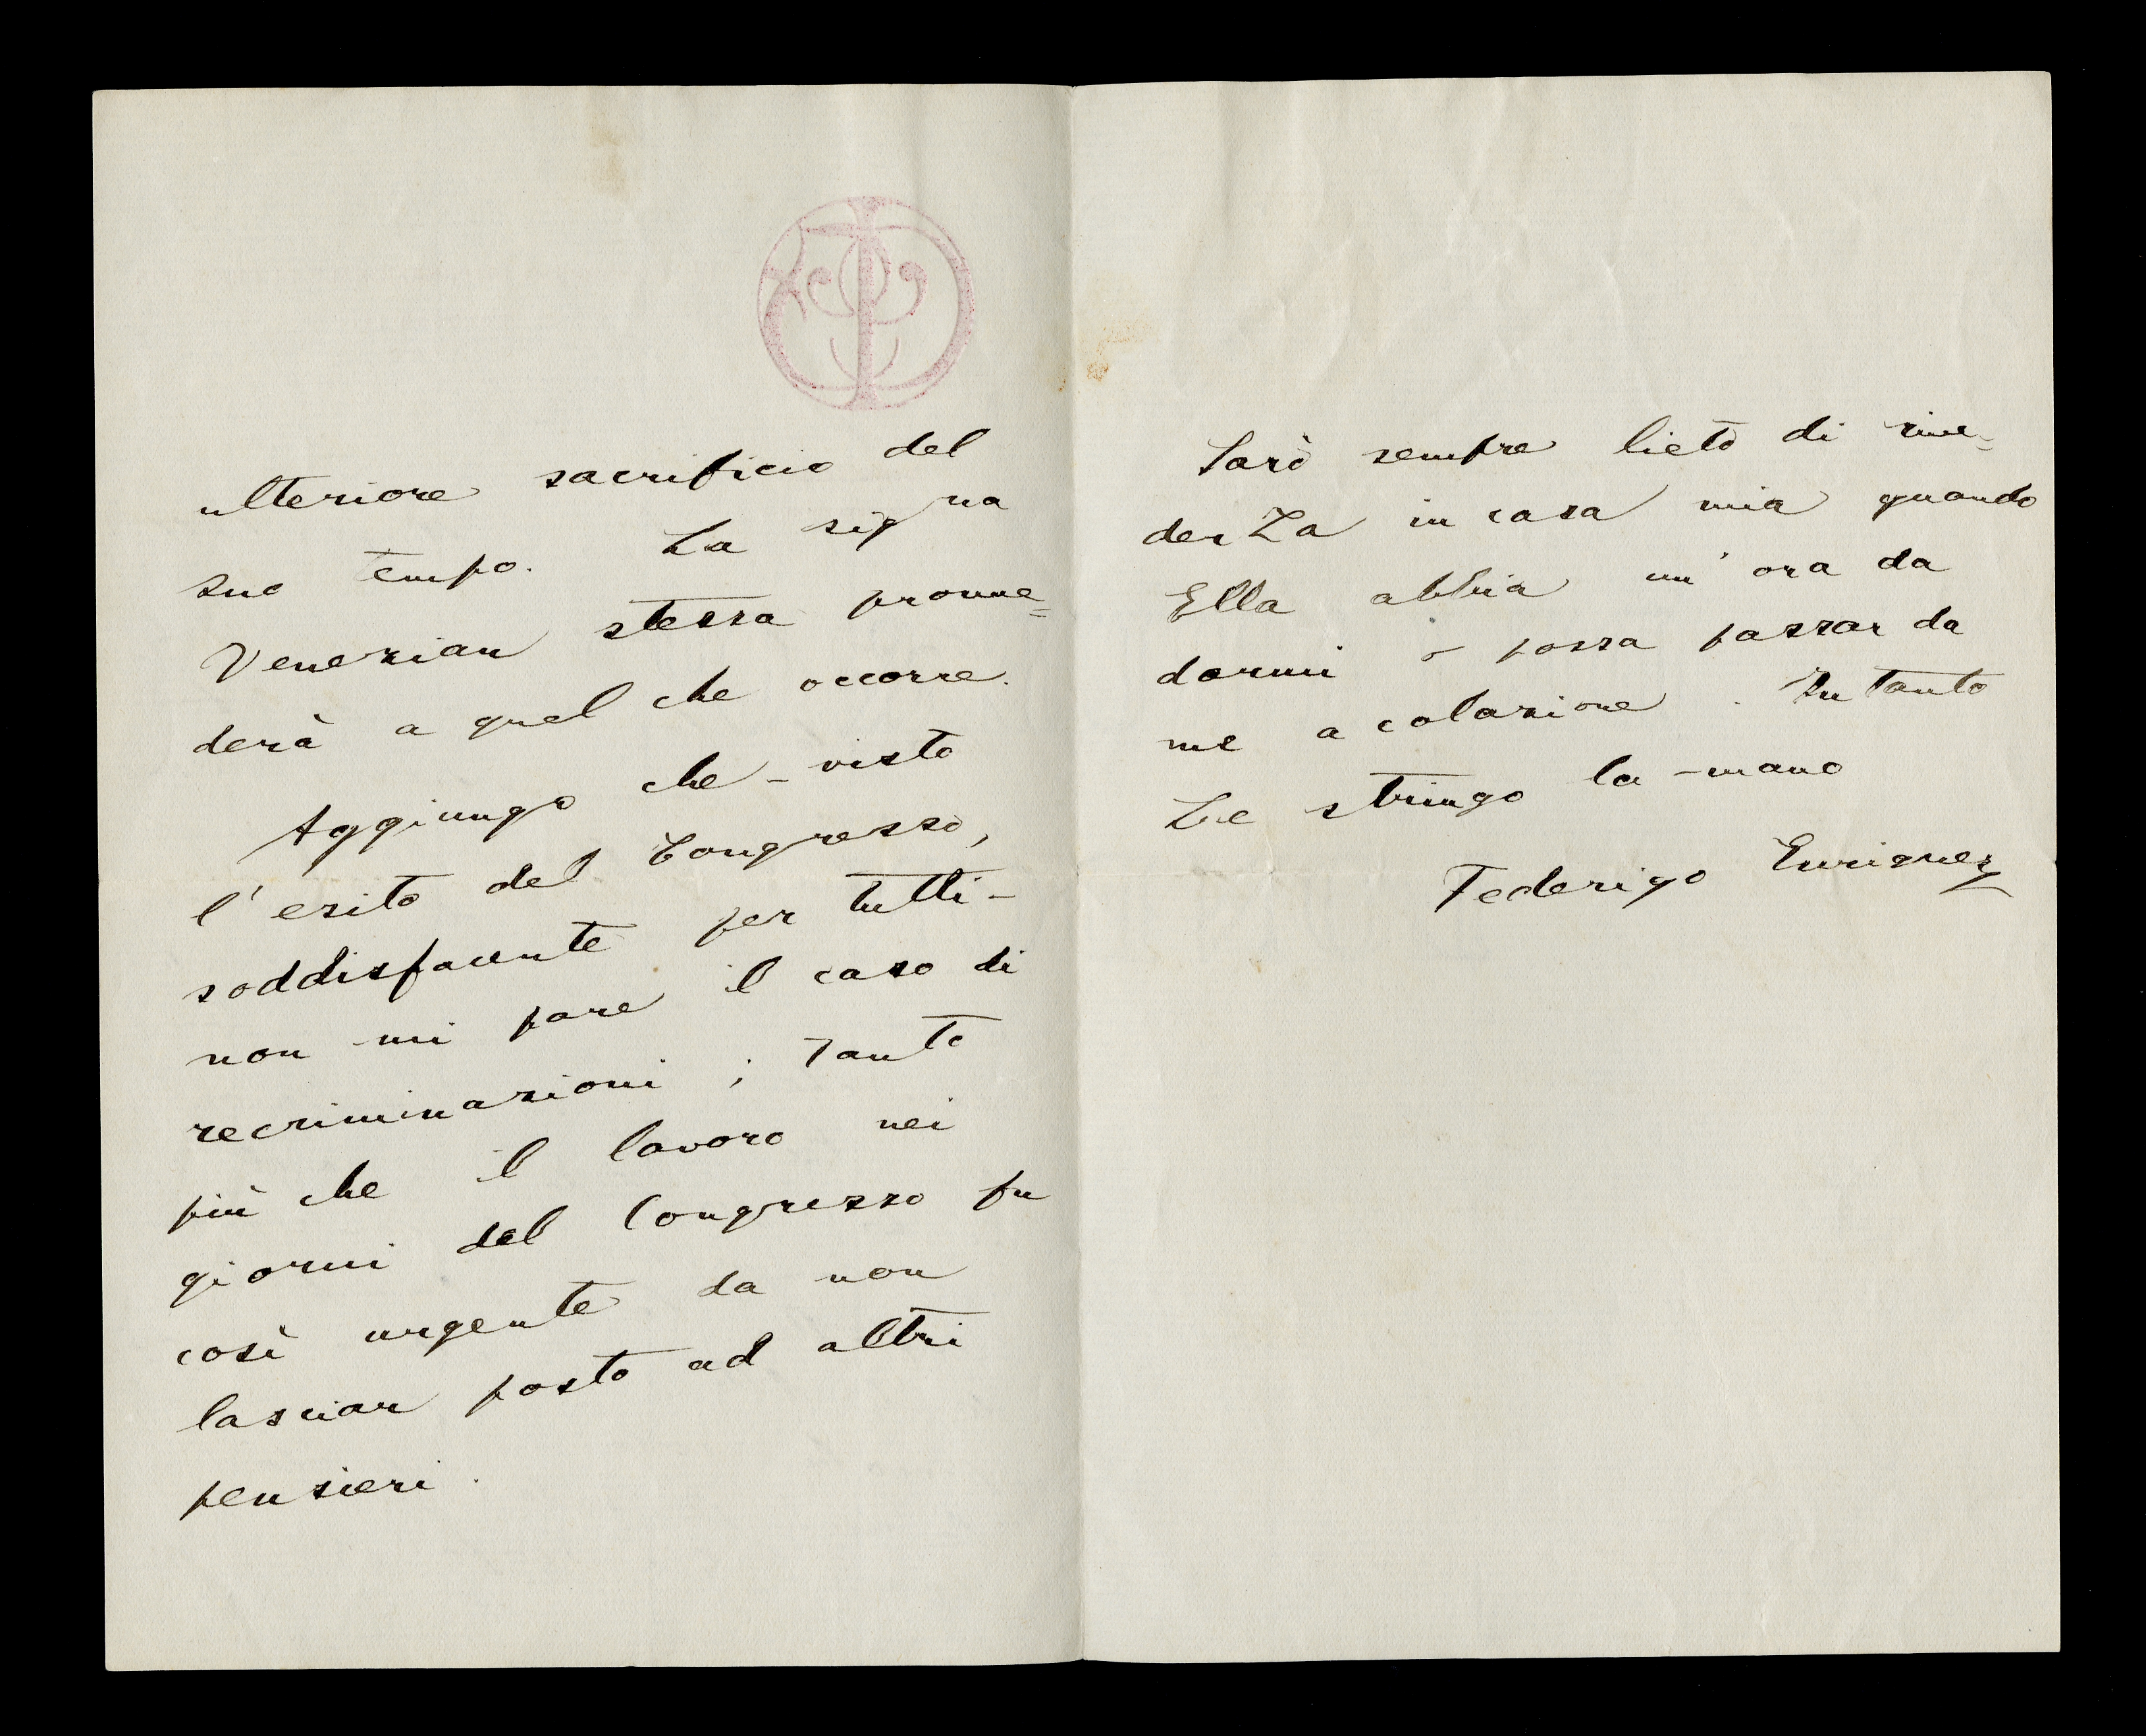 ulteriore sacrificio del
suo tempo. La signa
Venezian stessa provve=
derà a quel che occorre.
Aggiungo che - visto
l'esito del Congresso,
soddisfacente per tutti -
non mi pare il caso di
recriminazioni; tanto
più che il lavoro nei
giorni del Congresso fu
così urgente da non
lasciar posto ad altri
pensieri.
Sarò sempre lieto di rive=
derLa in casa mia quando
Ella abbia un'ora da
darmi o possa passar da
me a colazione. Intanto
Le stringo la mano
Federigo Enriques